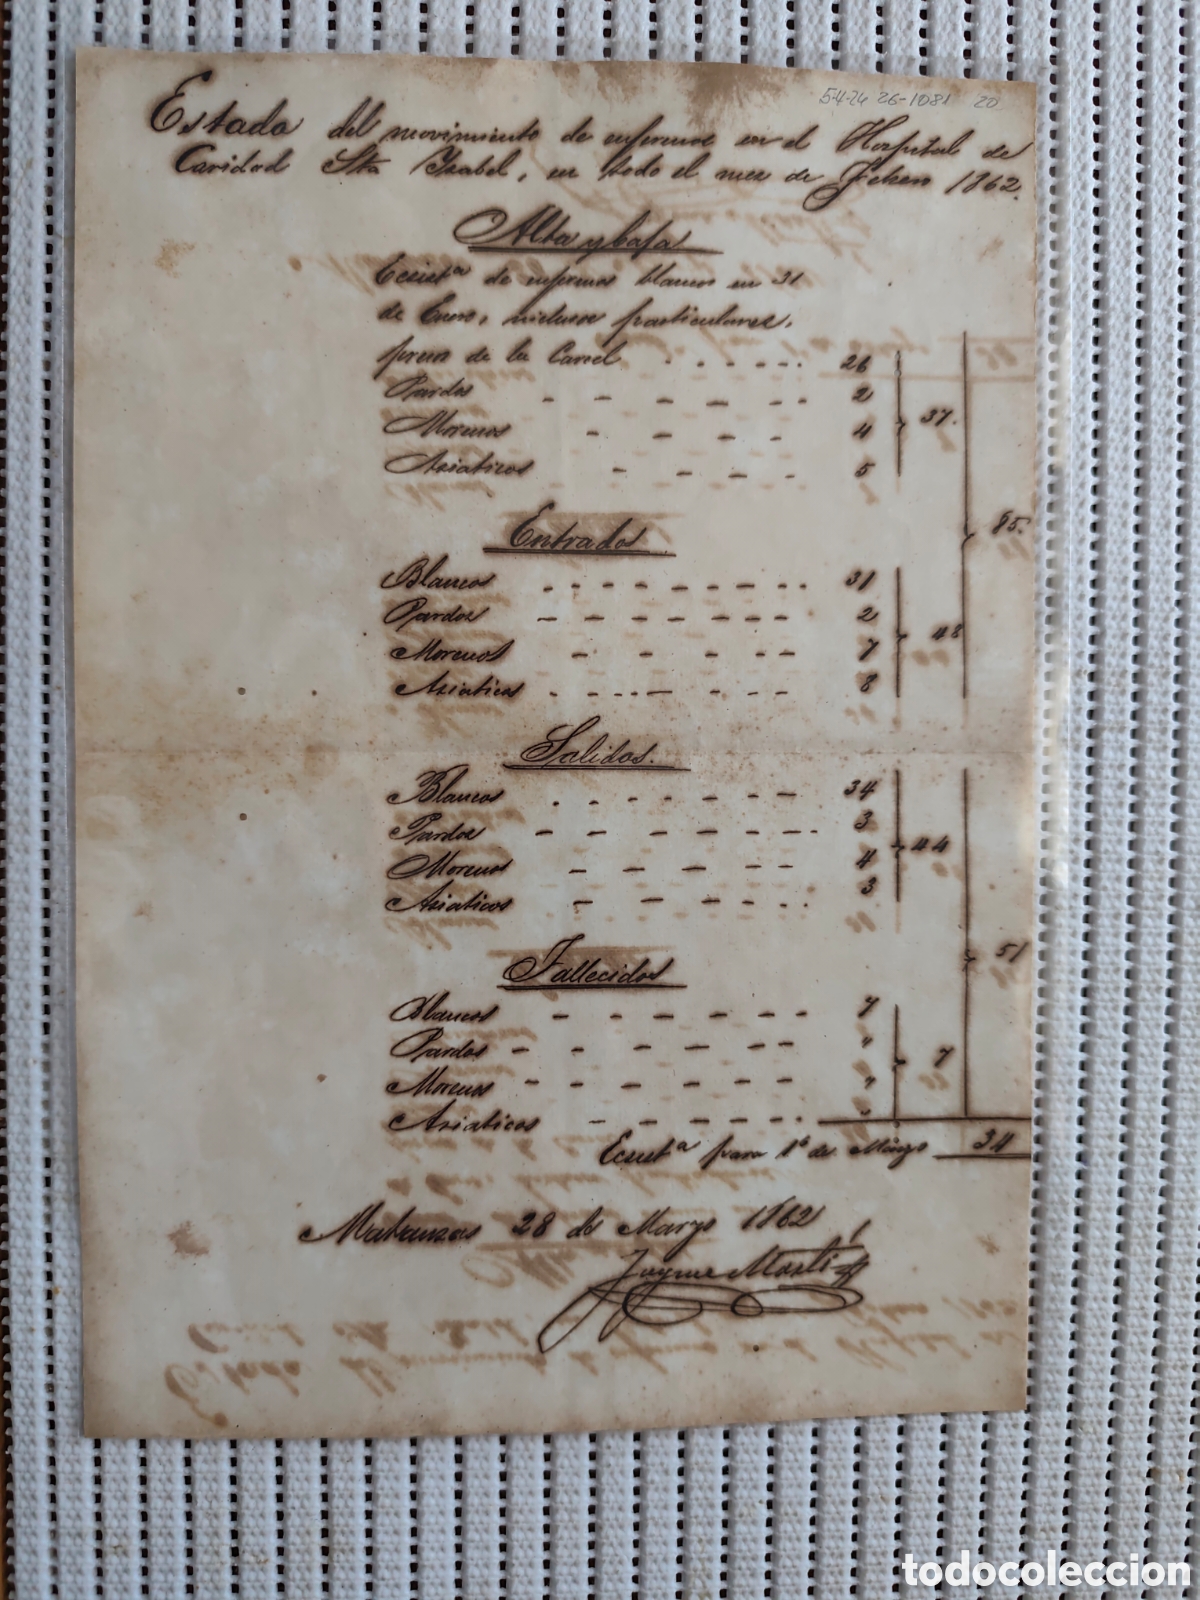 54-24 26-1081 20
Estado del movimiento de enfermos en el Hospital de
Caridad Sta Ysabel, en todo el mes de Febero 1862.
Alta y bafa
Ecsist.a de enfermos blancos en 31
de Enero, inclusos particulares,
presos de la Carcel . . . . . . 26
Pardos - - - - - - 2
Morenos - - - - 4 37.
Asiaticos - - - - 5
85.
Entrados
Blancos - - - - - - - - 31
Pardos - - - - - - - 2
Morenos - - - - - 7 48
Asiaticos - - - - - - - 8
Salidos.
Blancos . . - - - - - 34
Pardos - - - - - - - - 3
Morenos - - - - - 4 44
Asiaticos - - - - - 3
51
Fallecidos
Blancos - - - - - - 7
Pardos - - - - - - - "
Morenos - - - - - - - " 7
Asiaticos - - - - - - "
Ecsist.a para 1º de Marzo 34
Matanzas 28 de Marzo 1862
Jayme Martí
todocoleccion